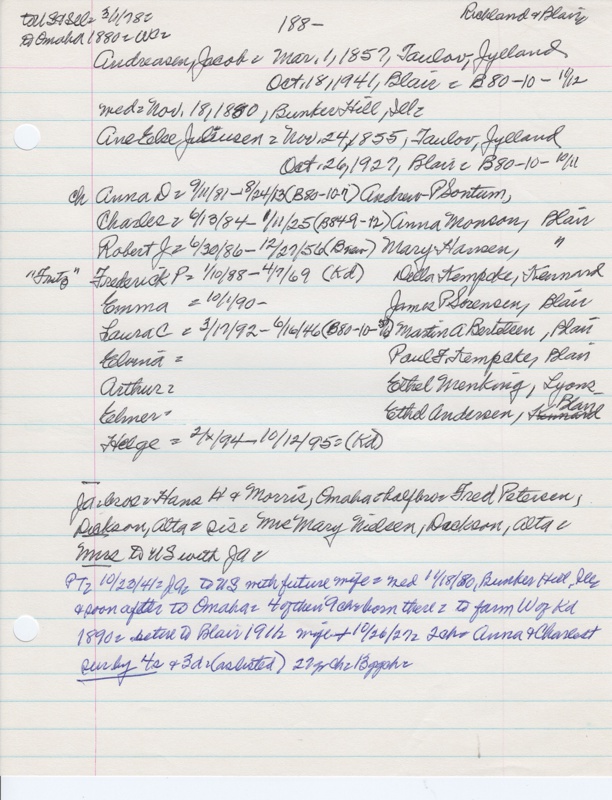 to US & Ill = 3/1/78 =
to Omaha 1880 = WC =
188-
Richland & Blair
Andreasen, Jacob = Mar. 1, 1857, Taulov, Jylland
Oct. 18, 1941, Blair = B80-10-10/12
med = Nov. 18, 1880, Bunker Hill, Ill =
Ane Else Juliussen = Nov. 24, 1855, Taulov, Jylland
Oct. 26, 1927, Blair = B80-10-10/11
ch Anna D = 9/11/81 - 8/24/13 (B80-10-7) Andrew P Sontum,
Charles = 6/13/84 - 1/11/25 (B849-12) Anna Monson, Blair
Robert J = 6/30/86 - 12/27/56 (Bnew) Mary Hansen, "
"Fritz" Frederick P = 1/10/88 - 4/7/69 (Kd) Della Kempcke, Kennard
Emma = 10/1/90 - James P Sorensen, Blair
Laura C = 3/17/92 - 6/16/46 (B80-10- Martin A Bertelsen, Blair
Elvina = Paul F Kempcke, Blair
Arthur = Ethel Menking, Lyons
Elmer = Ethel Andersen, Kennard Blair
Helge = 2/x/94 - 10/12/95 = (Kd)
Ja = bros = Hans H & Morris, Omaha & halfbro = Fred Petersen,
Dickson, Alta = sis = Mrs Mary Nielsen, Dickson, Alta =
Mrs to US with Ja =
PT = 10/23/41 = Ja = to US with future wife = med 11/18/80, Bunker Hill, Ill
& soon after to Omaha = 4 of their 9 ch born there = to farm W of Kd
1890 = retire to Blair 1912 wife + 10/26/27 = 2 ch = Anna & Charles +
surby 4s & 3d = (as listed) 27 gr ch = 13 ggch =